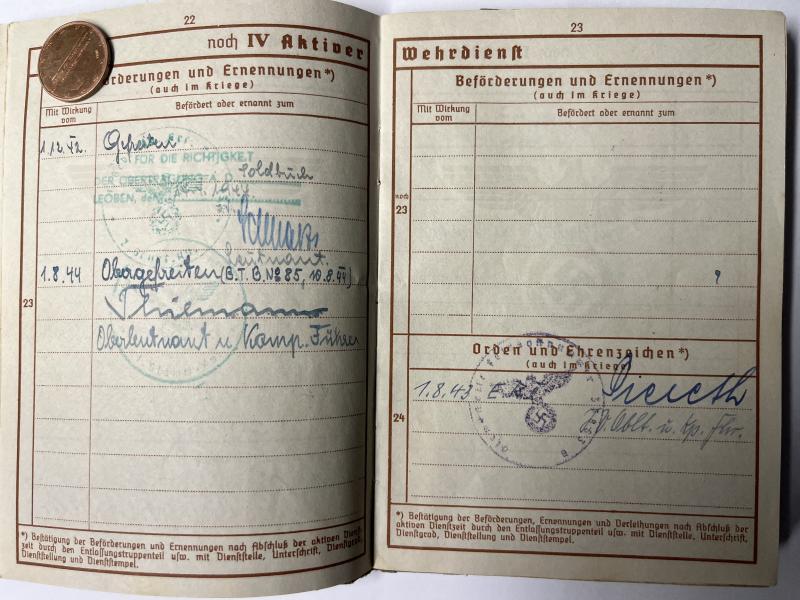 22
noch IV Aktiver
Beförderungen und Ernennungen*)
(auch im Kriege)
Mit Wirkung vom
Befördert oder ernannt zum
1.12.42. Gefreiten
FÜR DIE RICHTIGKEIT
Soldbuch
DER ÜBERTRAGUNG
LEOBEN, den 1944
Leutnant.
23
1.8.44 Obergefreiten (B.T.B. No 85, 10.8.44)
Thiemann
Oberleutnant u. Komp.-Führer
*) Bestätigung der Beförderungen und Ernennungen nach Abschluß der aktiven Dienst-
zeit durch den Entlassungstruppenteil usw. mit Dienststelle, Unterschrift, Dienstgrad,
Dienststellung und Dienststempel.
23
Wehrdienst
Beförderungen und Ernennungen*)
(auch im Kriege)
Mit Wirkung vom
Befördert oder ernannt zum
noch
23
Orden und Ehrenzeichen*)
(auch im Kriege)
1.8.43 E.K.
24
Oblt. u. Kp. Fhr.
*) Bestätigung der Beförderungen, Ernennungen und Verleihungen nach Abschluß der
aktiven Dienstzeit durch den Entlassungstruppenteil usw. mit Dienststelle, Unterschrift,
Dienstgrad, Dienststellung und Dienststempel.